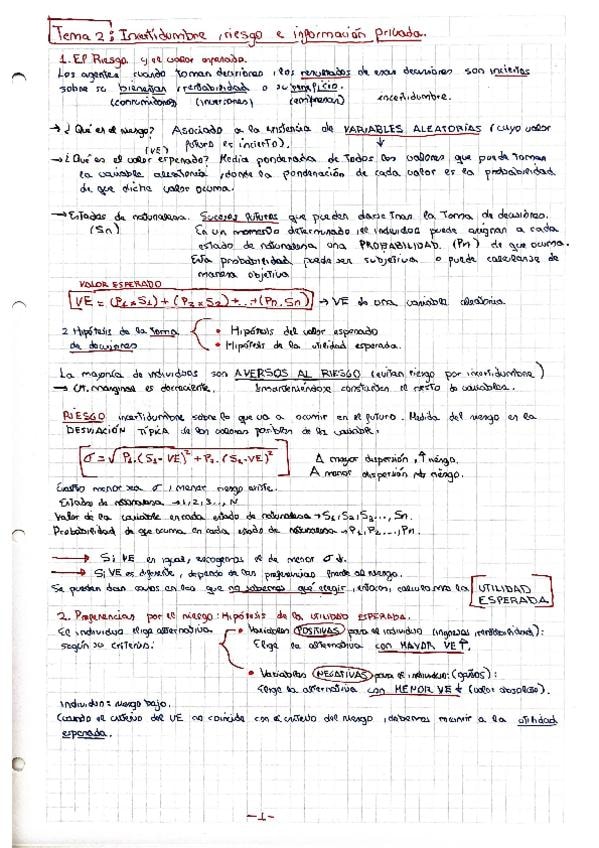 Tema 2: Incertidumbre, riesgo e información privada.
1. El Riesgo y el valor esperado.
Los agentes cuando toman decisiones, los resultados de esas decisiones son inciertos
sobre su bienestar, rentabilidad o su beneficio.
(consumidores) (inversores) (empresas) incertidumbre.
→ ¿Qué es el riesgo? Asociado a la existencia de VARIABLES ALEATORIAS (cuyo valor
futuro es incierto).
(VE)
→ ¿Qué es el valor esperado? Media ponderada de todos los valores que puede tomar
la variable aleatoria, donde la ponderación de cada valor es la probabilidad
de que dicho valor ocurra.
→ Estados de naturaleza. Sucesos futuros que pueden darse tras la toma de decisiones.
(Sn) En un momento determinado, el individuo puede asignar a cada
estado de naturaleza una PROBABILIDAD (Pn) de que ocurra.
Esta probabilidad puede ser subjetiva o puede calcularse de
manera objetiva
VALOR ESPERADO
VE = (P1 x S1) + (P2 x S2) + ... + (Pn. Sn) → VE de una variable aleatoria
2 Hipótesis de la toma
de decisiones
• Hipótesis del valor esperado
• Hipótesis de la utilidad esperada.
La mayoría de individuos son AVERSOS AL RIESGO (evitan riesgo por incertidumbre)
→ Ut. marginal es decreciente. manteniéndose constantes el resto de variables.
RIESGO incertidumbre sobre lo que va a ocurrir en el futuro. Medida del riesgo es la
DESVIACIÓN TÍPICA de los valores posibles de la variable:
σ = √P1.(S1 - VE)² + P2.(S2 - VE)²
A mayor dispersión, ↑ riesgo.
A menor dispersión ↓ riesgo.
Cuanto menor sea σ, menor riesgo existe.
Estados de naturaleza → 1, 2, 3..., N
Valor de la variable en cada estado de naturaleza → S1, S2, S3..., Sn.
Probabilidad de que ocurra en cada estado de naturaleza → P1, P2..., Pn.
→ Si VE es igual, escogemos el de menor σ ↓.
→ Si VE es diferente, depende de las preferencias frente al riesgo.
Se pueden dar casos en los que no sabemos qué elegir, entonces, calculamos la UTILIDAD
ESPERADA
2. Preferencias por el riesgo: Hipótesis de la UTILIDAD ESPERADA.
El individuo elige alternativa
según su criterio:
• Variables POSITIVAS para el individuo (ingresos, rentabilidades):
Elige la alternativa con MAYOR VE ↑.
• Variables NEGATIVAS para el individuo: (gastos):
Elige la alternativa con MENOR VE ↓ (valor absoluto).
Individuo: riesgo bajo.
Cuando el criterio del VE no coincide con el criterio del riesgo, debemos recurrir a la utilidad
esperada.
-1-